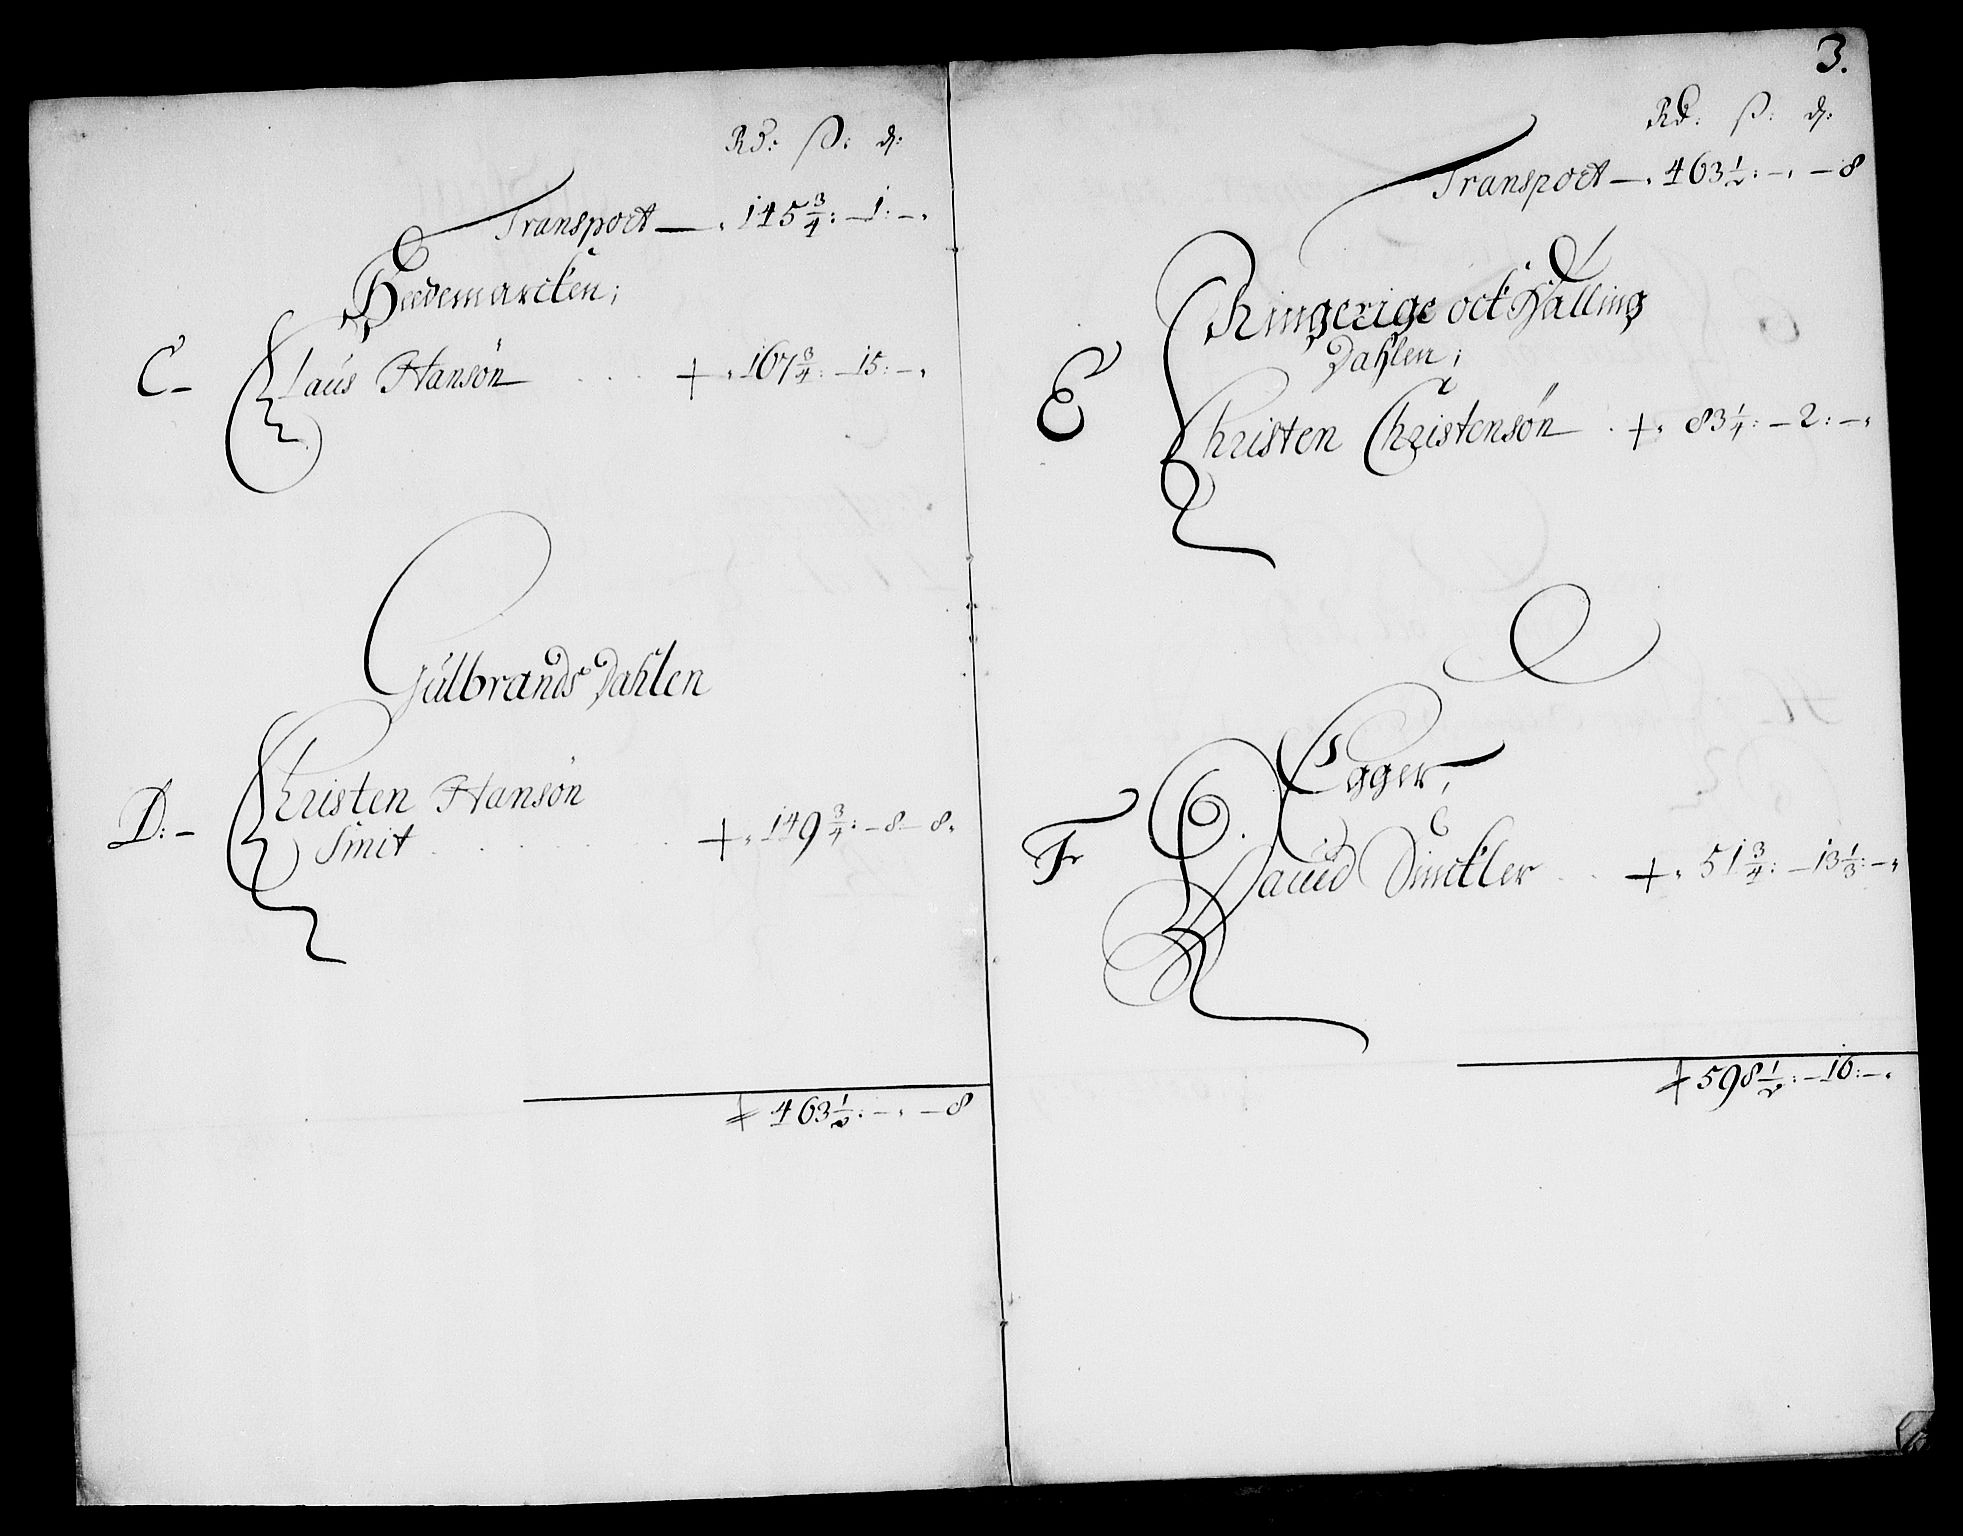 Rd: ß: d:
Transport —. 145 3/4: — 1: —.
Hedemarcken;
C — Laus Hansøn . . . + . 167 3/4: — 15: —.
Gulbrands Dahlen
Christen Hansøn
D: — Smit . . . . . . + . 149 3/4: — 8 — 8.
463 1/2: — . — 8
3.
Rd: ß: d:
Transport —. 463 1/2: — . — 8
Ringerige ock Halling
Dahlen;
E Christen Christensøn . + . 83 1/4: — 2: —.
Egger,
F Dauid Sinckler . . + . 51 3/4: — 13 1/3: —.
598 1/2: — 16: —.